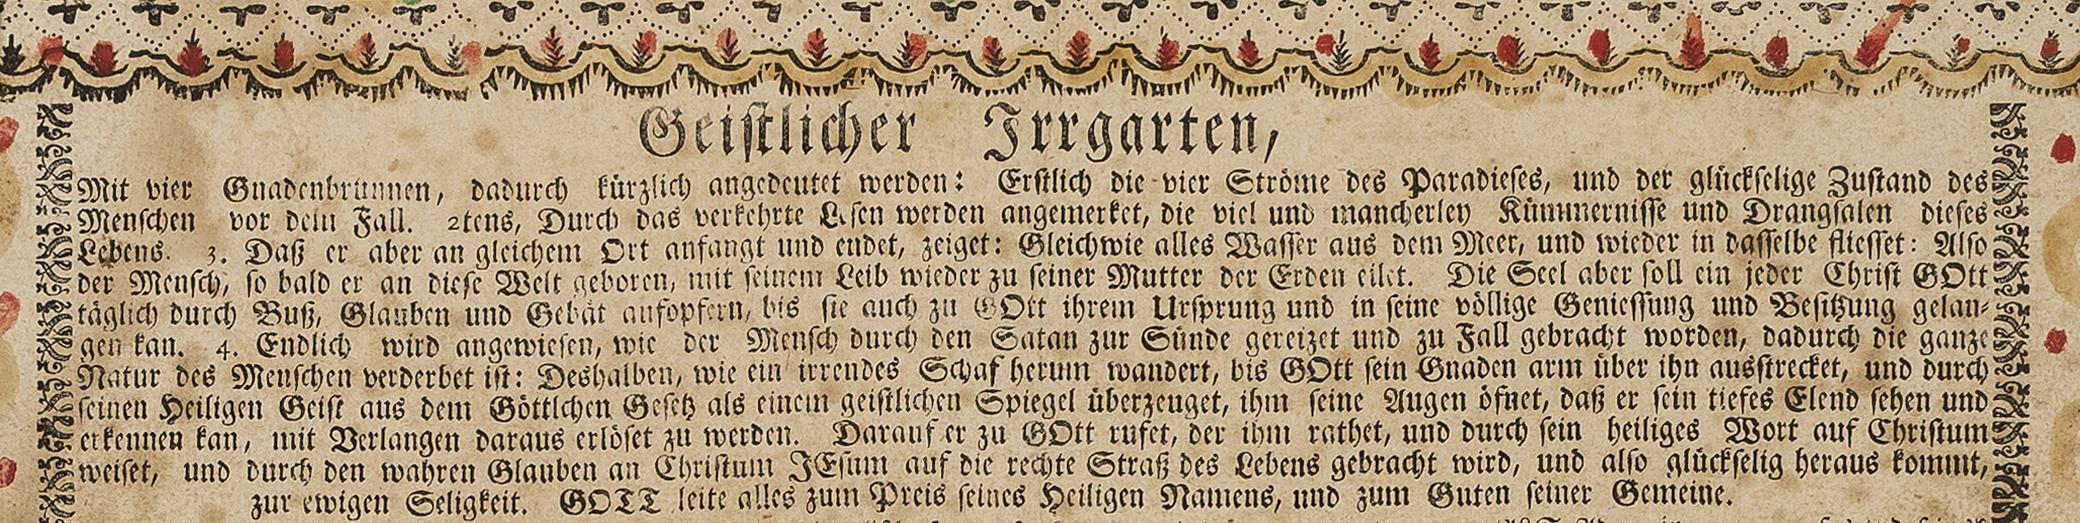 Geistlicher Irrgarten,
Mit vier Gnadenbrunnen, dadurch kürzlich angedeutet werden: Erstlich die vier Ströme des Paradieses, und der glückselige Zustand des
Menschen vor dem Fall. 2tens, Durch das verkehrte Lesen werden angemerket, die viel und mancherley Kümmernisse und Drangsalen dieses
Lebens. 3. Daß er aber an gleichem Ort anfangt und endet, zeiget: Gleichwie alles Wasser aus dem Meer, und wieder in dasselbe fliesset: Also
der Mensch, so bald er an diese Welt geboren, mit seinem Leib wieder zu seiner Mutter der Erden eilet. Die Seel aber soll ein jeder Christ GOtt
täglich durch Buß, Glauben und Gebät aufopfern, bis sie auch zu GOtt ihrem Ursprung und in seine völlige Geniessung und Besitzung gelan-
gen kan. 4. Endlich wird angewiesen, wie der Mensch durch den Satan zur Sünde gereizet und zu Fall gebracht worden, dadurch die ganze
Natur des Menschen verderbet ist: Deshalben, wie ein irrendes Schaf herum wandert, bis GOtt sein Gnaden arm über ihn ausstrecket, und durch
seinen Heiligen Geist aus dem Göttlchen Gesetz als einem geistlichen Spiegel überzeuget, ihm seine Augen öfnet, daß er sein tiefes Elend sehen und
erkennen kan, mit Verlangen daraus erlöset zu werden. Darauf er zu GOtt rufet, der ihm rathet, und durch sein heiliges Wort auf Christum
weiset, und durch den wahren Glauben an Christum JEsum auf die rechte Straß des Lebens gebracht wird, und also glückselig heraus kommt,
zur ewigen Seligkeit. GOTT leite alles zum Preis seines Heiligen Namens, und zum Guten seiner Gemeine.